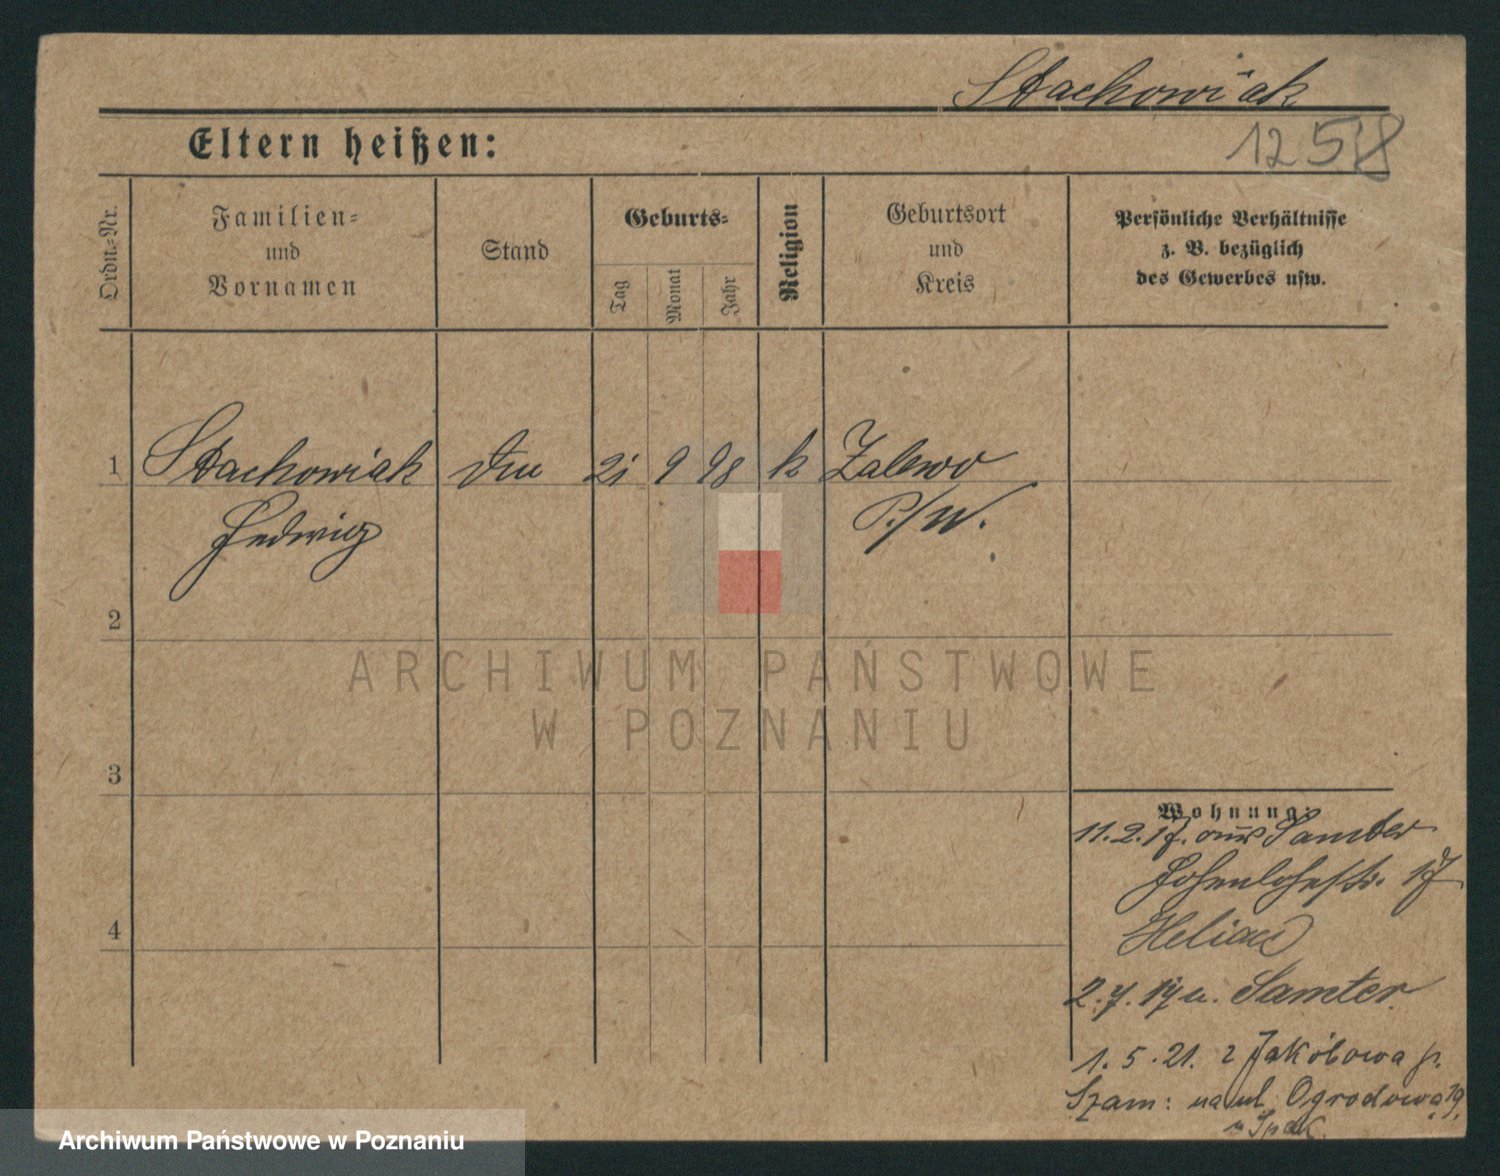 Stachowiak
Eltern heißen:
1258
Ordn.-Nr.
Familien-
und
Vornamen
Stand
Geburts-
Tag
Monat
Jahr
Religion
Geburtsort
und
Kreis
Persönliche Verhältnisse
z. B. bezüglich
des Gewerbes usw.
1 Stachowiak 21 9 98 k Zalewo
Hedwig P./W.
2
ARCHIWUM PAŃSTWOWE
W POZNANIU
3
Wohnung:
11.2.17. aus Samter
Hohenlohestr. 17
4
2.7.17 n. Samter
1.5.21. z Jakóbowa p.
Szam: na ul. Ogrodową 19
Archiwum Państwowe w Poznaniu